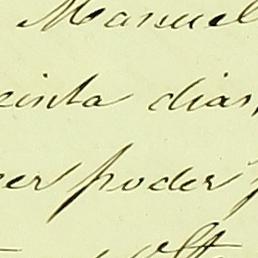 Manuel
einta dias
er poder